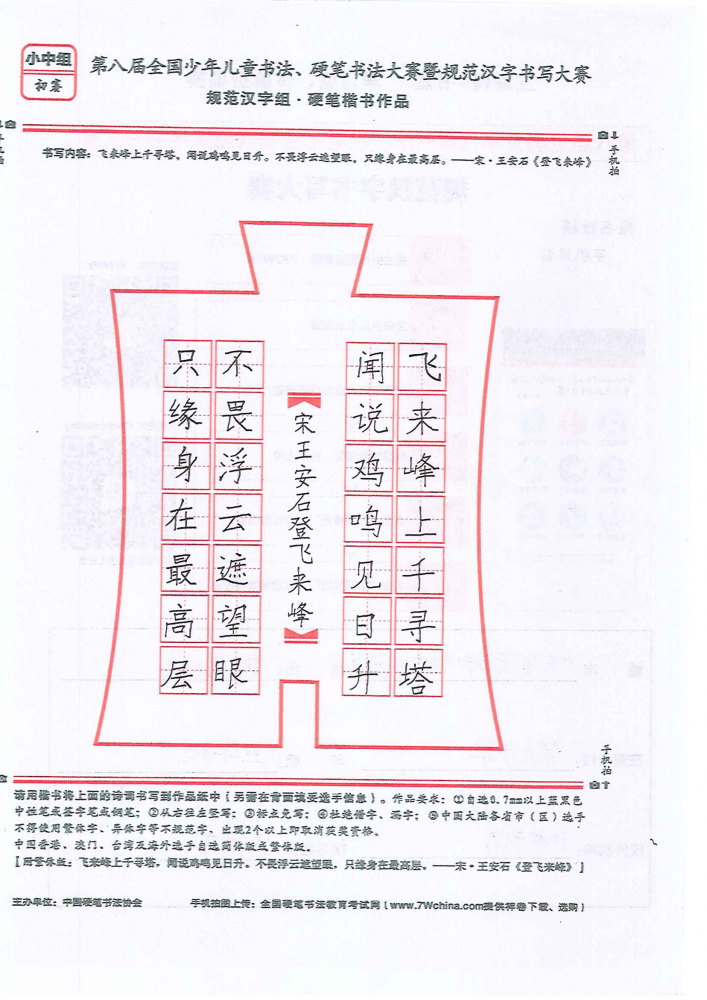 小中组
初赛
第八届全国少年儿童书法、硬笔书法大赛暨规范汉字书写大赛
规范汉字组·硬笔楷书作品
手机拍
手机拍
书写内容：飞来峰上千寻塔，闻说鸡鸣见日升。不畏浮云遮望眼，只缘身在最高层。——宋·王安石《登飞来峰》
飞来峰上千寻塔
闻说鸡鸣见日升
宋王安石登飞来峰
不畏浮云遮望眼
只缘身在最高层
手机拍
请用楷书将上面的诗词书写到作品纸中（另需在背面填妥选手信息）。作品要求：①自选0.7mm以上蓝黑色
中性笔或签字笔或钢笔；②从右往左竖写；③标点免写；④杜绝错字、漏字；⑤中国大陆各省市（区）选手
不得使用繁体字、异体字等不规范字，出现2个以上即取消获奖资格。
中国香港、澳门、台湾及海外选手自选简体版或繁体版。
【附繁体版：飞来峰上千寻塔，闻说鸡鸣见日升。不畏浮云遮望眼，只缘身在最高层。——宋·王安石《登飞来峰》】
主办单位：中国硬笔书法协会
手机拍图上传：全国硬笔书法教育考试网（www.7Wchina.com提供样卷下载、选购）